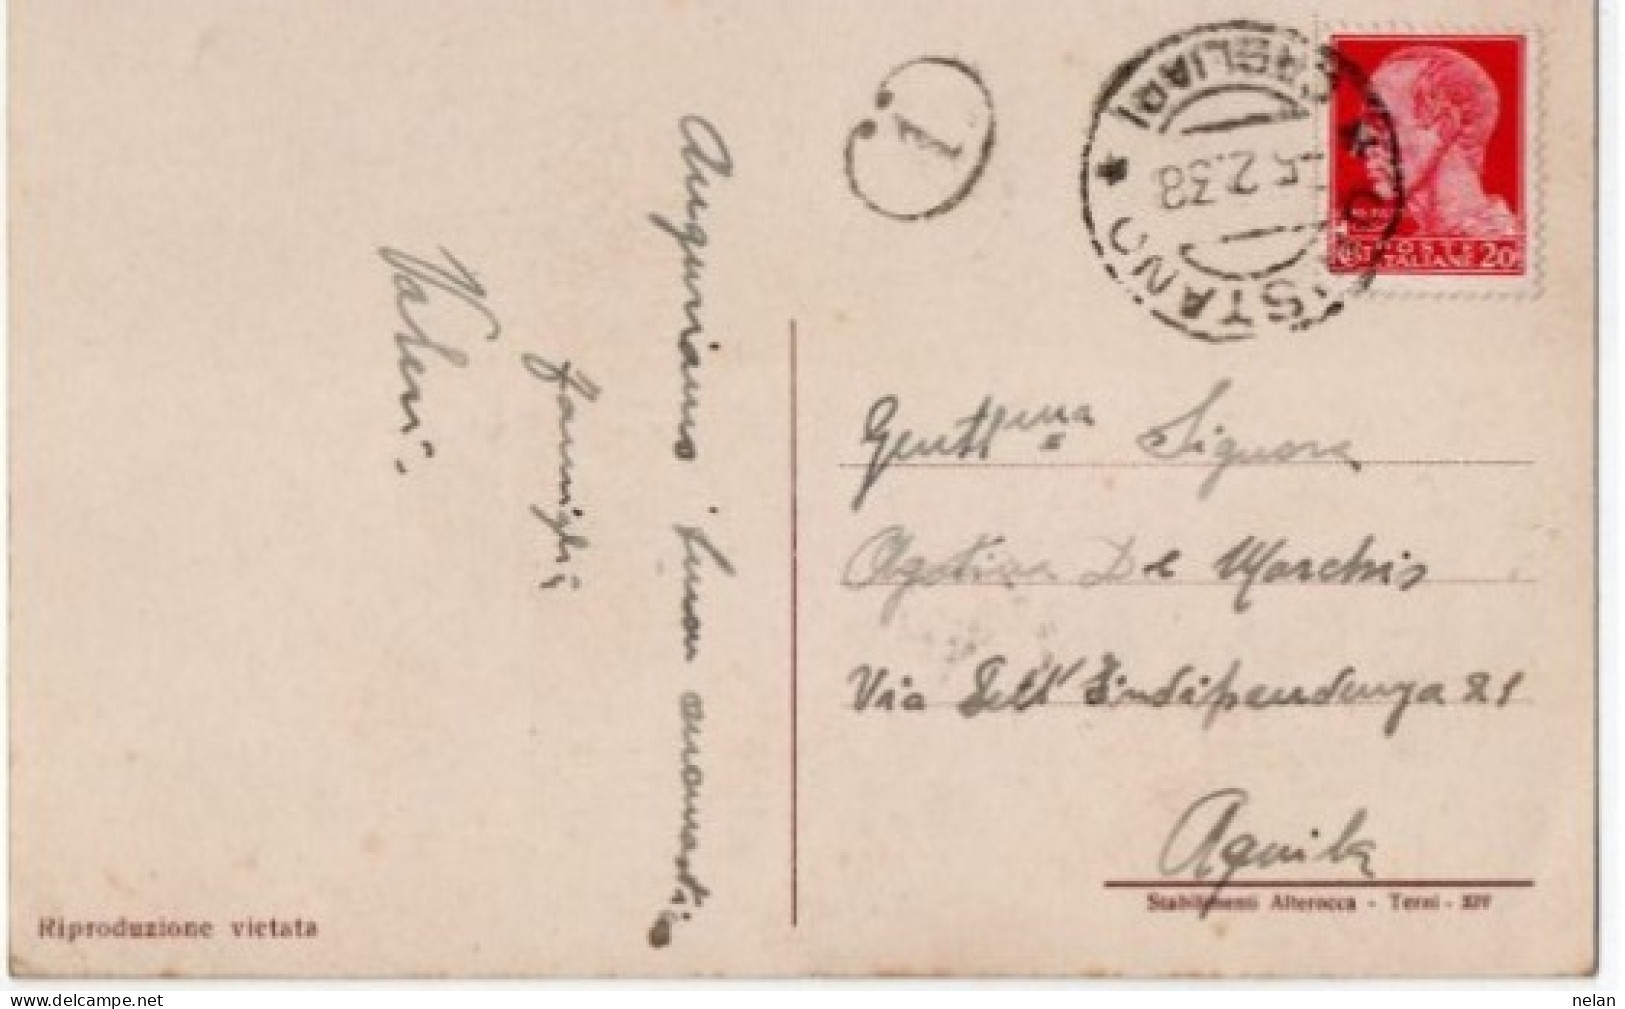 Auguriamo buon onomastico
Famiglia
Valeri.
Riproduzione vietata
ORISTANO
* CAGLIARI *
5.2.38
1
POSTE
ITALIANE 20
Gentil.ma Signora
Agatina De Marchis
Via Dell'Indipendenza 21
Aquila
Stabilimenti Alterocca - Terni - XIV
nelan